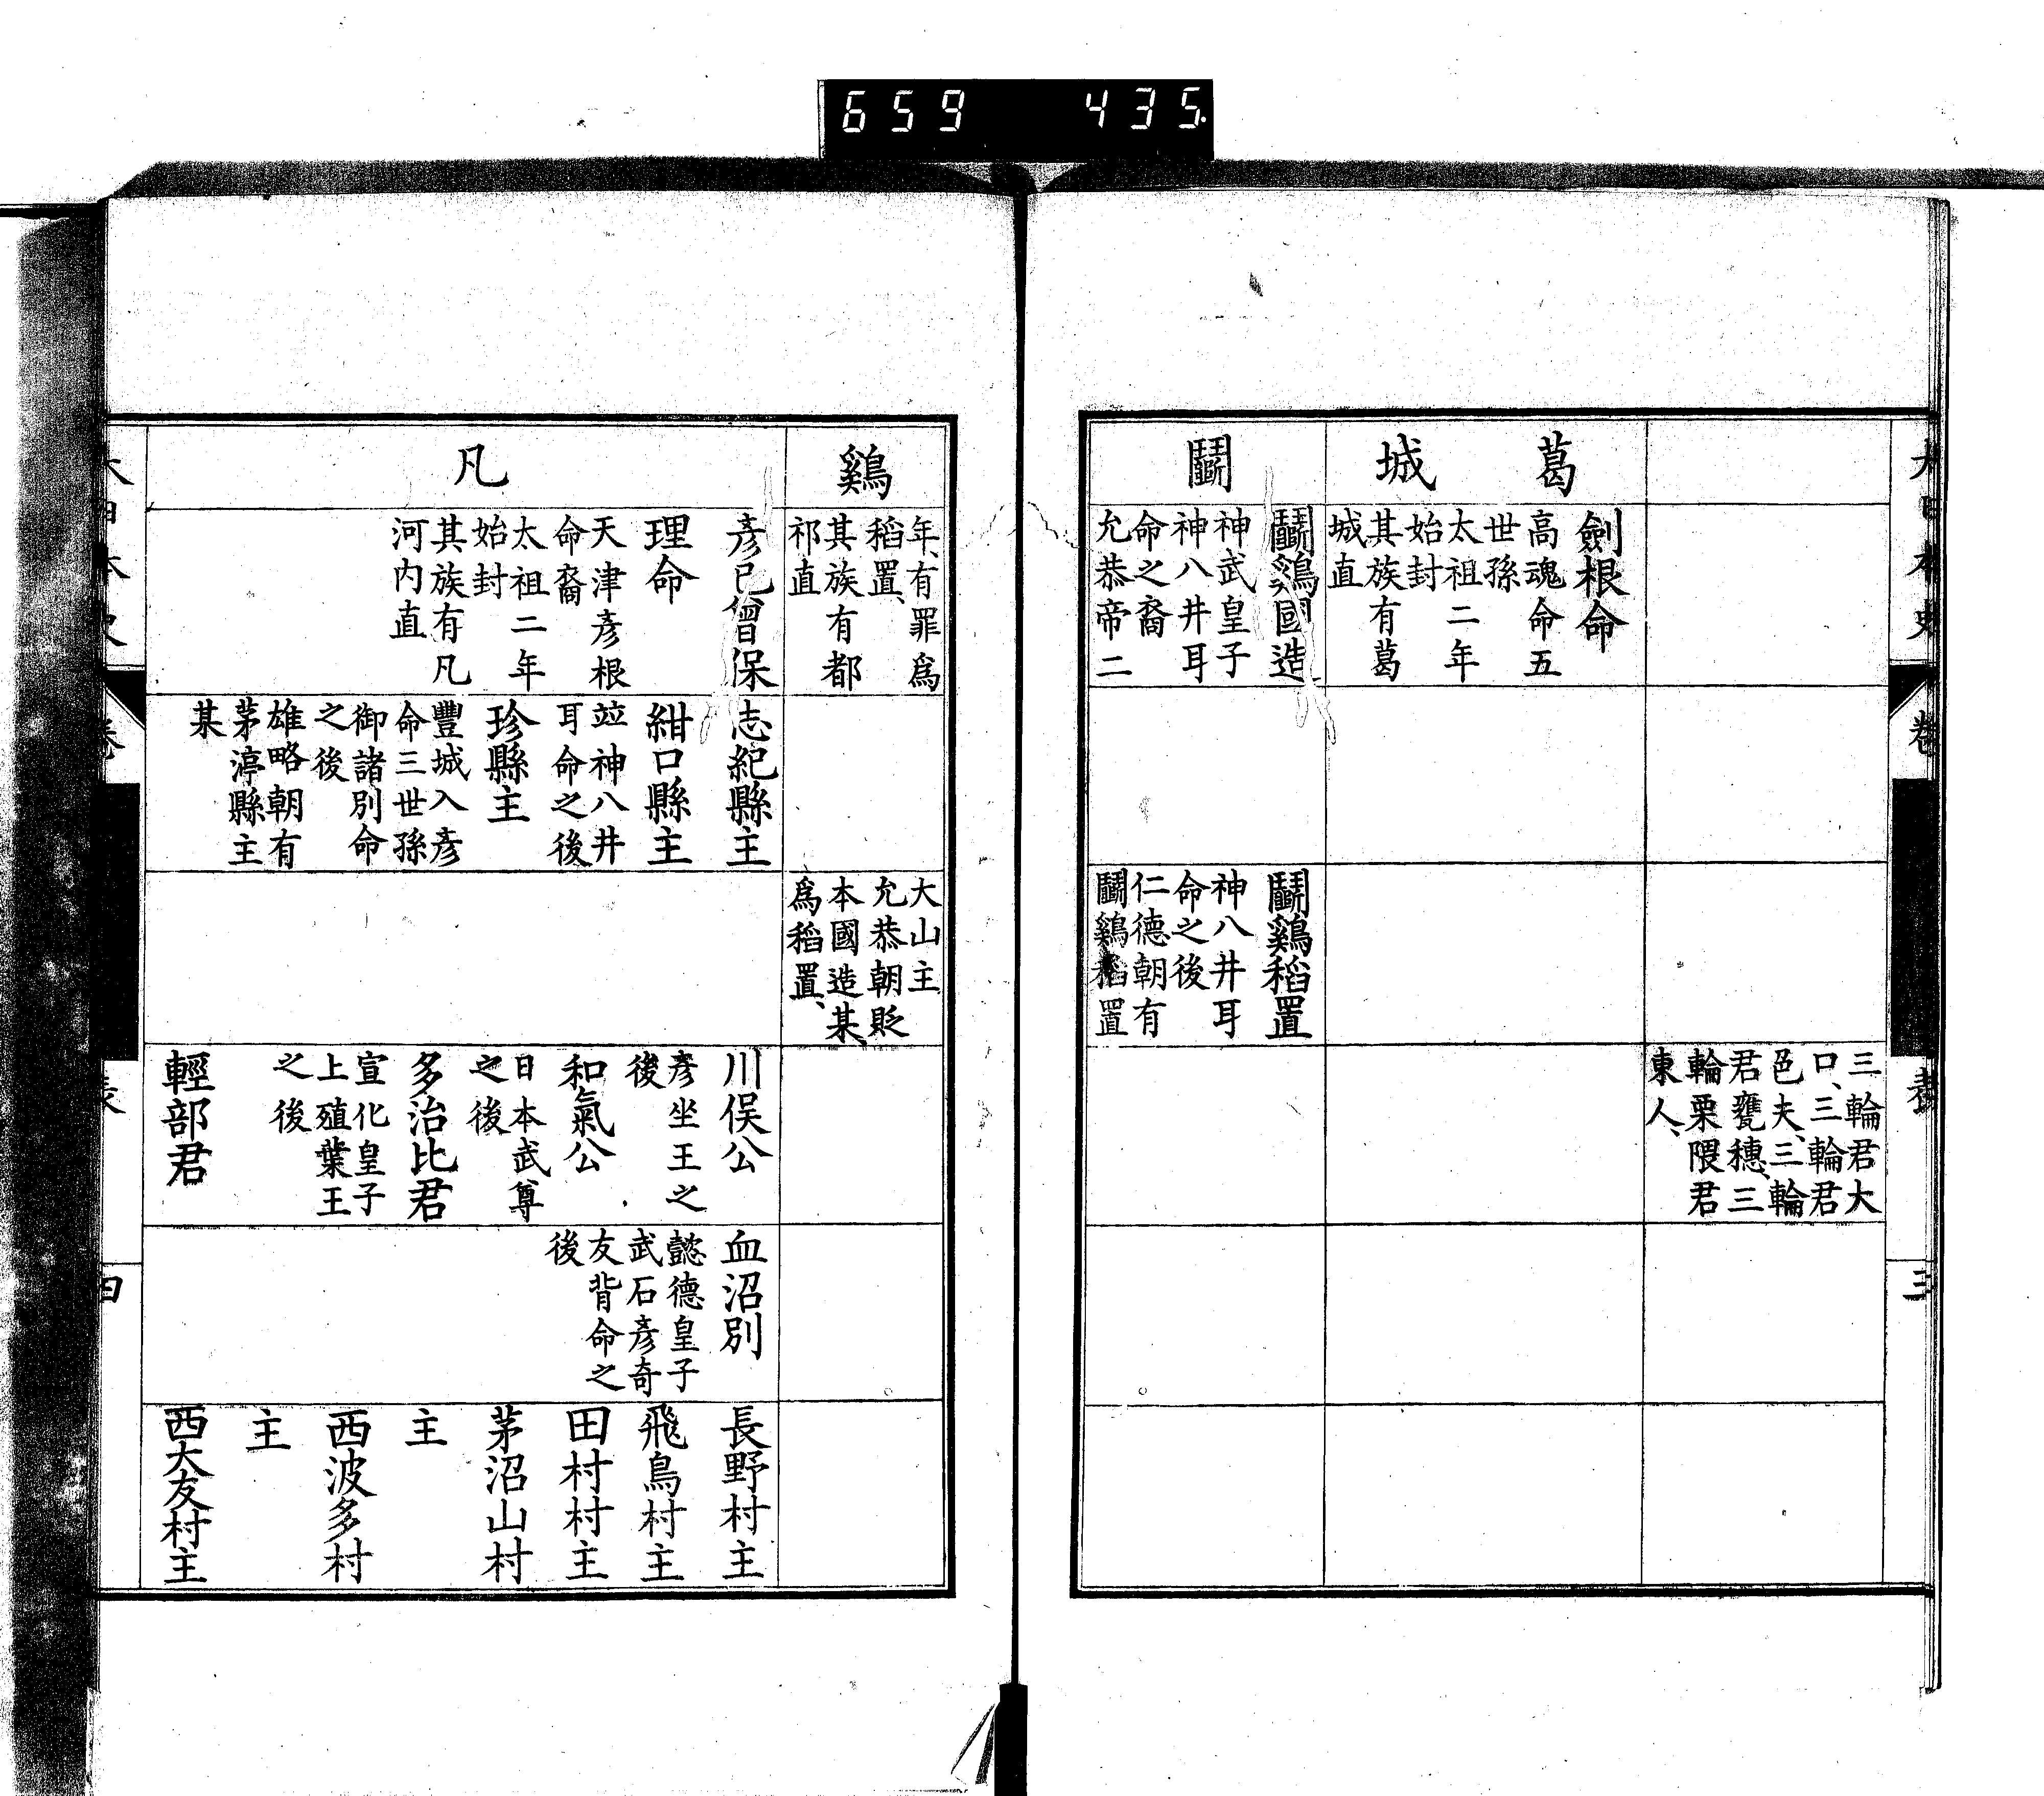 659 435
三輪君大
口、三輪君
色夫、三輪
君甕穗、三
輪栗隈君
東人、
葛城
劍根命
高魂命五
世孫
太祖二年
始封
其族有葛
城直
鬭
鬭鷄國造
神武皇子
神八井耳
命之裔
允恭帝二
鬭鷄稻置
神八井耳
命之後
仁德朝有
鬭鷄稻置
鷄
年、有罪爲
稻置、
其族有都
祁直
大山主
允恭朝貶
本國造某、
爲稻置、
凡
彥己曾保
理命
天津彥根
命裔
太祖二年
始封
其族有凡
河内直
志紀縣主
紺口縣主
竝神八井
耳命之後
珍縣主
豐城入彥
命三世孫
御諸別命
之後
雄略朝有
茅渟縣主
某
川俣公
彥坐王之
後
和氣公
日本武尊
之後
多治比君
宣化皇子
上殖葉王
之後
輕部君
血沼別
懿德皇子
武石彥奇
友背命之
後
長野村主
飛鳥村主
田村村主
茅沼山村
主
西波多村
主
西大友村主